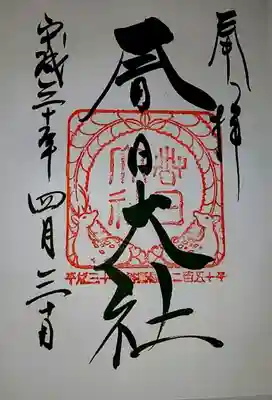 奉拝
春日大社
平成三十年四月三十日
平成三十 二百五十年